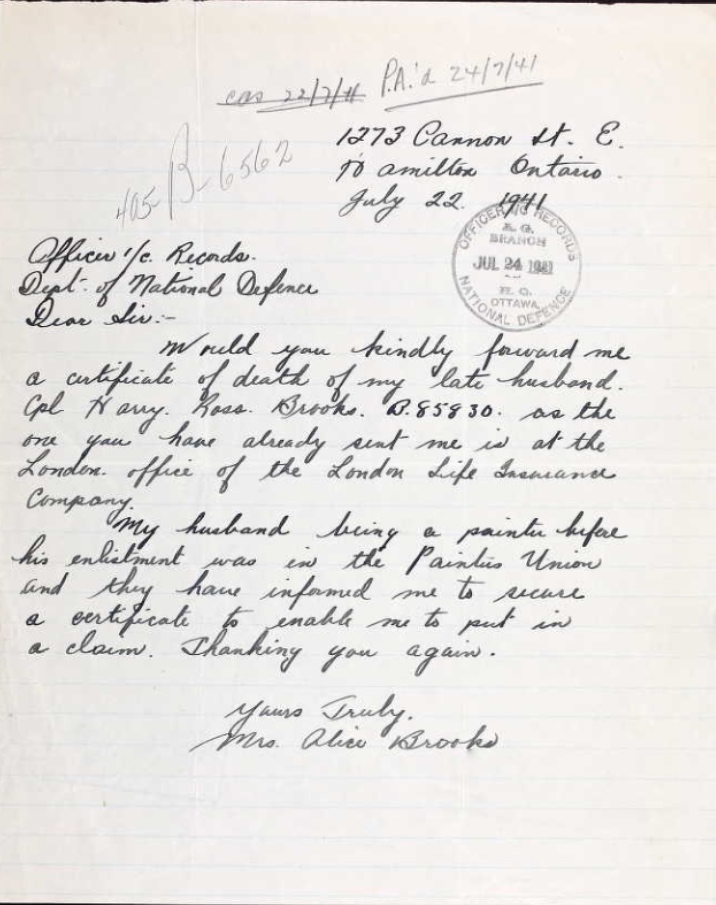 P.A.'d 24/7/41
405-B-6562
1273 Cannon St. E.
Hamilton Ontario.
July 22. 1941
OFFICER I/C RECORDS
A. G.
BRANCH
JUL 24 1941
H. Q.
OTTAWA
NATIONAL DEFENCE
Officer i/c. Records.
Dept. of National Defence
Dear Sir:-
Would you kindly forward me
a certificate of death of my late husband.
Cpl Harry. Ross. Brooks. B.85830. as the
one you have already sent me is at the
London. office of the London Life Insurance
Company.
My husband being a painter before
his enlistment was in the Painters Union
and they have informed me to secure
a certificate to enable me to put in
a claim. Thanking you again.
Yours Truly.
Mrs. Alice Brooks